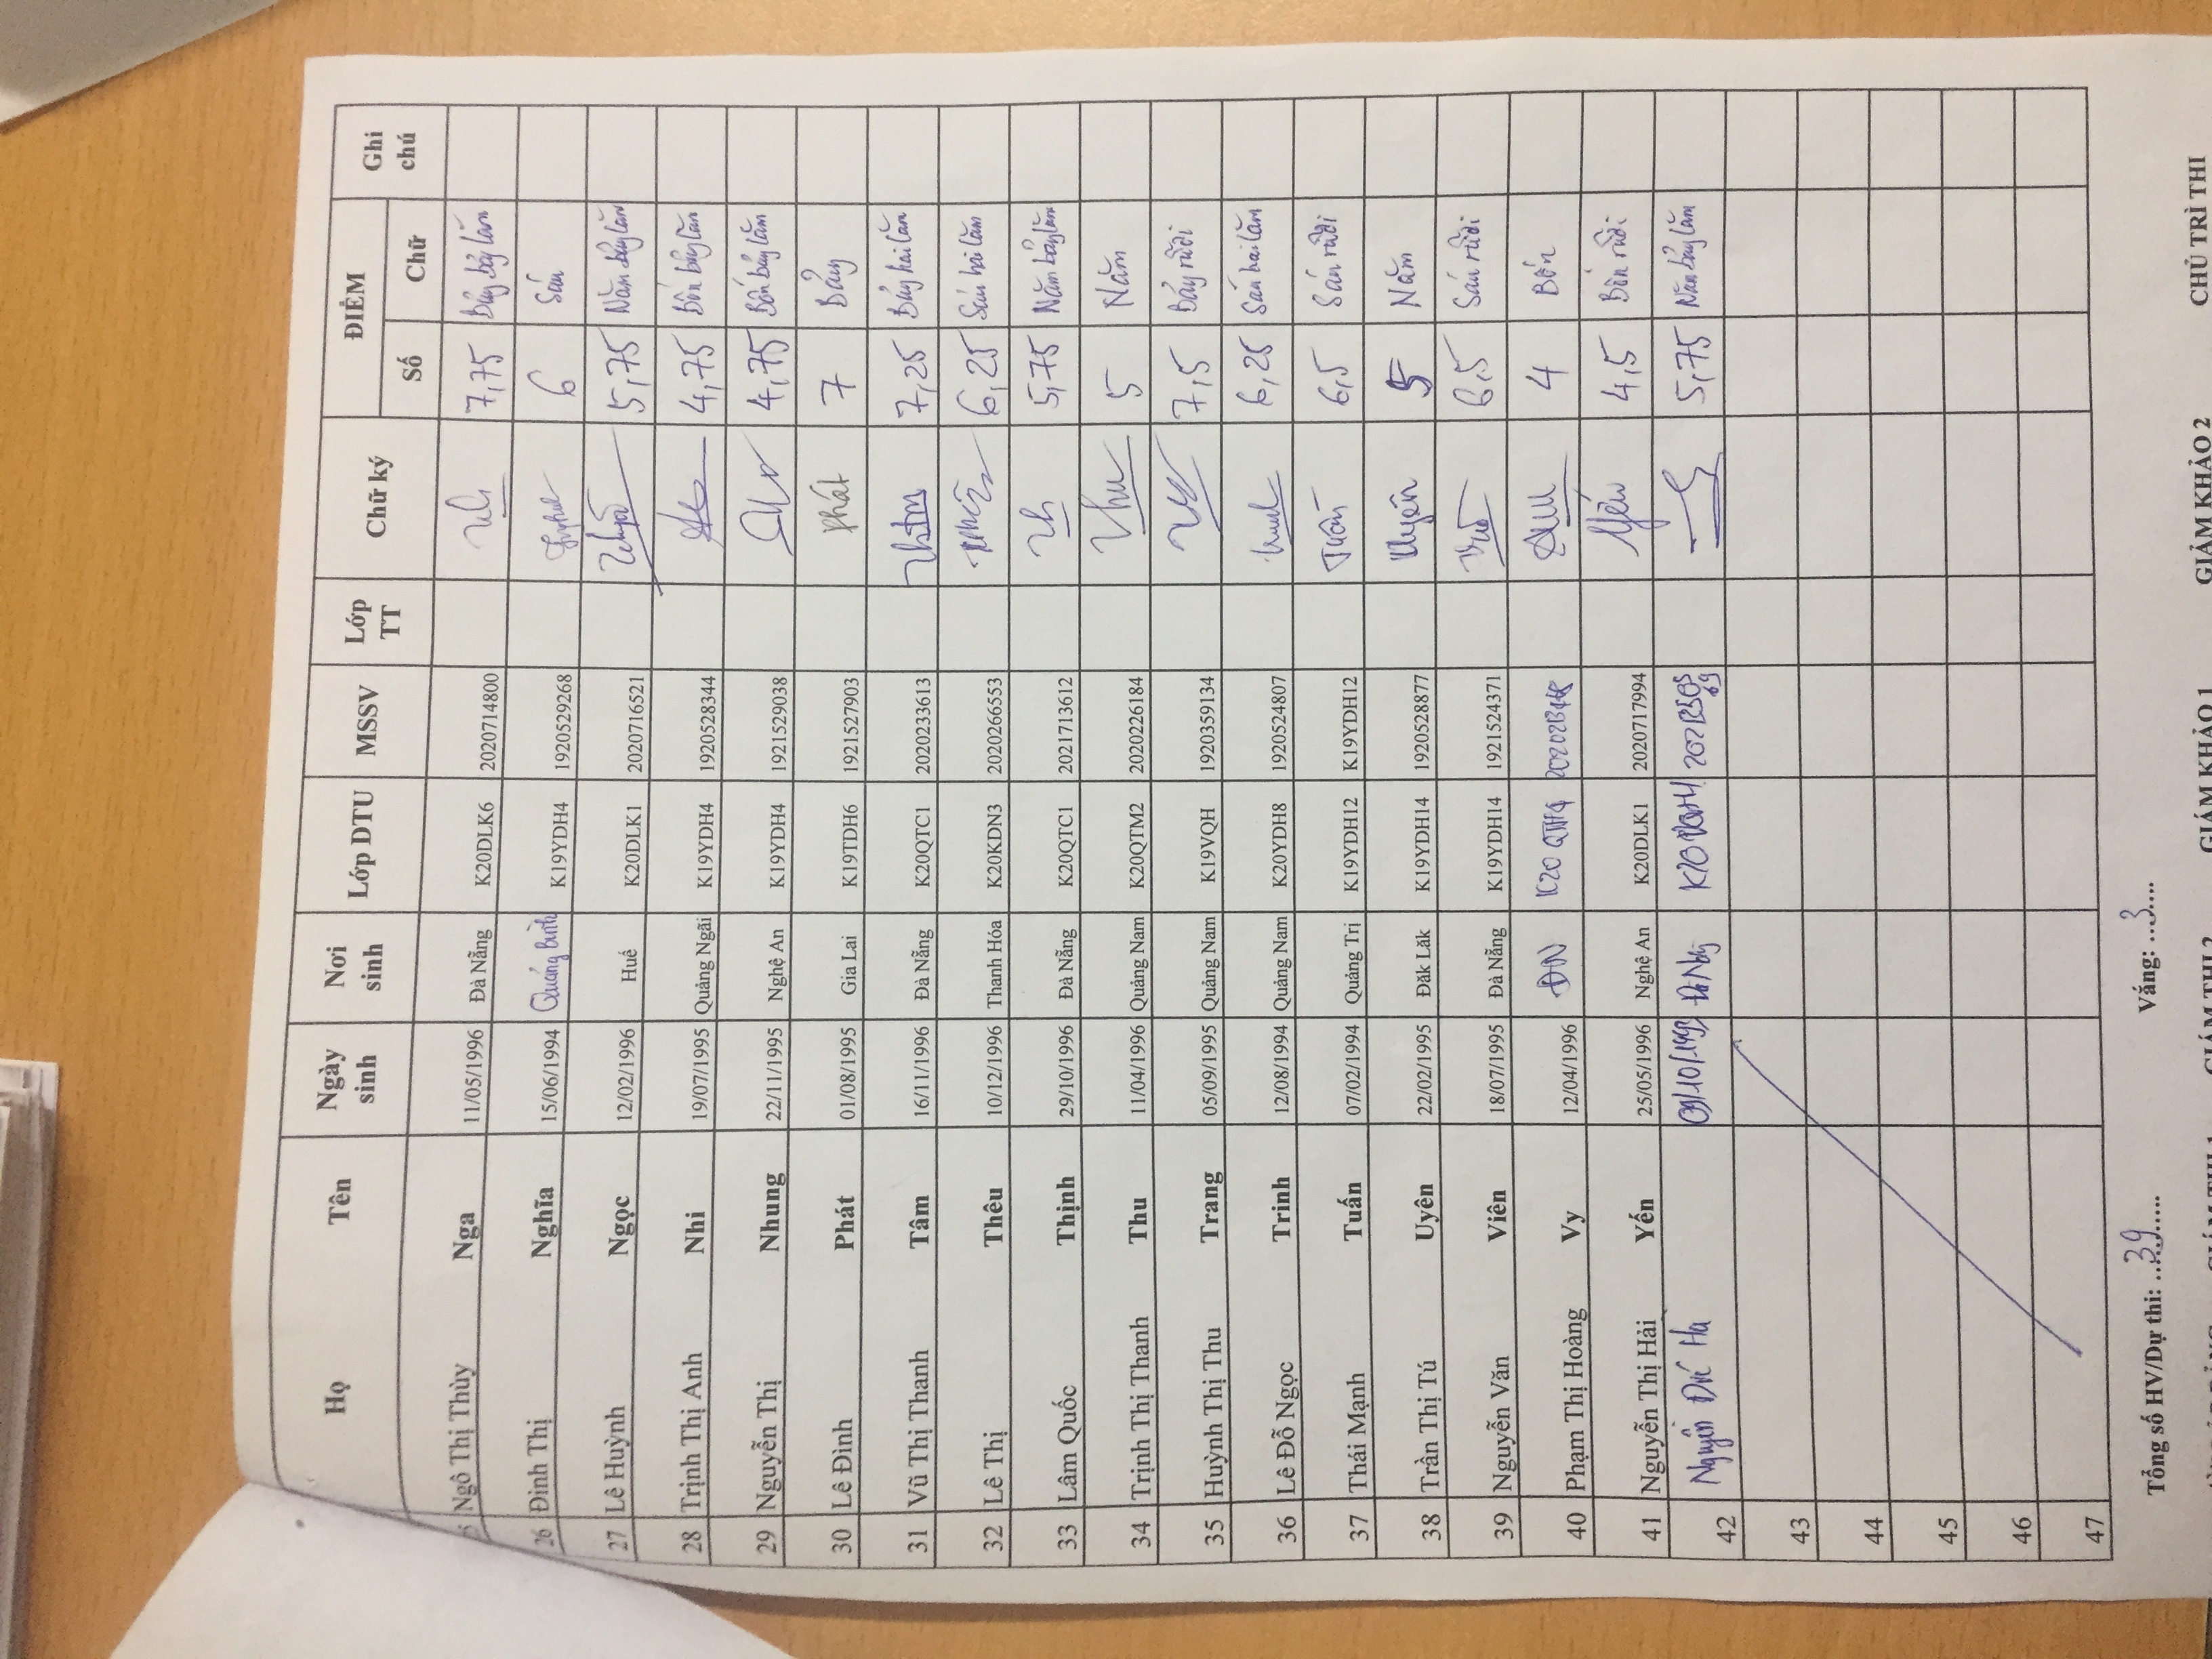 Họ Tên Ngày sinh Nơi sinh Lớp DTU MSSV Lớp TT Chữ ký ĐIỂM Ghi chú
Số Chữ
Ngô Thị Thùy Nga 11/05/1996 Đà Nẵng K20DLK6 2020714800 7,75 Bảy bảy lăm
26 Đinh Thị Nghĩa 15/06/1994 Quảng Bình K19YDH4 1920529268 6 Sáu
27 Lê Huỳnh Ngọc 12/02/1996 Huế K20DLK1 2020716521 5,75 Năm bảy lăm
28 Trịnh Thị Anh Nhi 19/07/1995 Quảng Ngãi K19YDH4 1920528344 4,75 Bốn bảy lăm
29 Nguyễn Thị Nhung 22/11/1995 Nghệ An K19YDH4 1921529038 4,75 Bốn bảy lăm
30 Lê Đình Phát 01/08/1995 Gia Lai K19TDH6 1921527903 Phát 7 Bảy
31 Vũ Thị Thanh Tâm 16/11/1996 Đà Nẵng K20QTC1 2020233613 7,25 Bảy hai lăm
32 Lê Thị Thêu 10/12/1996 Thanh Hóa K20KDN3 2020266553 6,25 Sáu hai lăm
33 Lâm Quốc Thịnh 29/10/1996 Đà Nẵng K20QTC1 2021713612 5,75 Năm bảy lăm
34 Trịnh Thị Thanh Thu 11/04/1996 Quảng Nam K20QTM2 2020226184 Thu 5 Năm
35 Huỳnh Thị Thu Trang 05/09/1995 Quảng Nam K19VQH 1920359134 7,5 Bảy rưỡi
36 Lê Đỗ Ngọc Trinh 12/08/1994 Quảng Nam K20YDH8 1920524807 6,25 Sáu hai lăm
37 Thái Mạnh Tuấn 07/02/1994 Quảng Trị K19YDH12 K19YDH12 Tuấn 6,5 Sáu rưỡi
38 Trần Thị Tú Uyên 22/02/1995 Đăk Lăk K19YDH14 1920528877 Uyên 5 Năm
39 Nguyễn Văn Viên 18/07/1995 Đà Nẵng K19YDH14 1921524371 6,5 Sáu rưỡi
40 Phạm Thị Hoàng Vy 12/04/1996 ĐN K20 4 Bốn
41 Nguyễn Thị Hải Yến 25/05/1996 Nghệ An K20DLK1 2020717994 Yến 4,5 Bốn rưỡi
42 Nguyễn Đức Hà 09/10/1993 Đà Nẵng 5,75 Năm bảy lăm
43
44
45
46
47
Tổng số HV/Dự thi: ..39...... Vắng: ...3....
GIÁM THỊ 2 GIÁM KHẢO 1 GIÁM KHẢO 2 CHỦ TRÌ THI